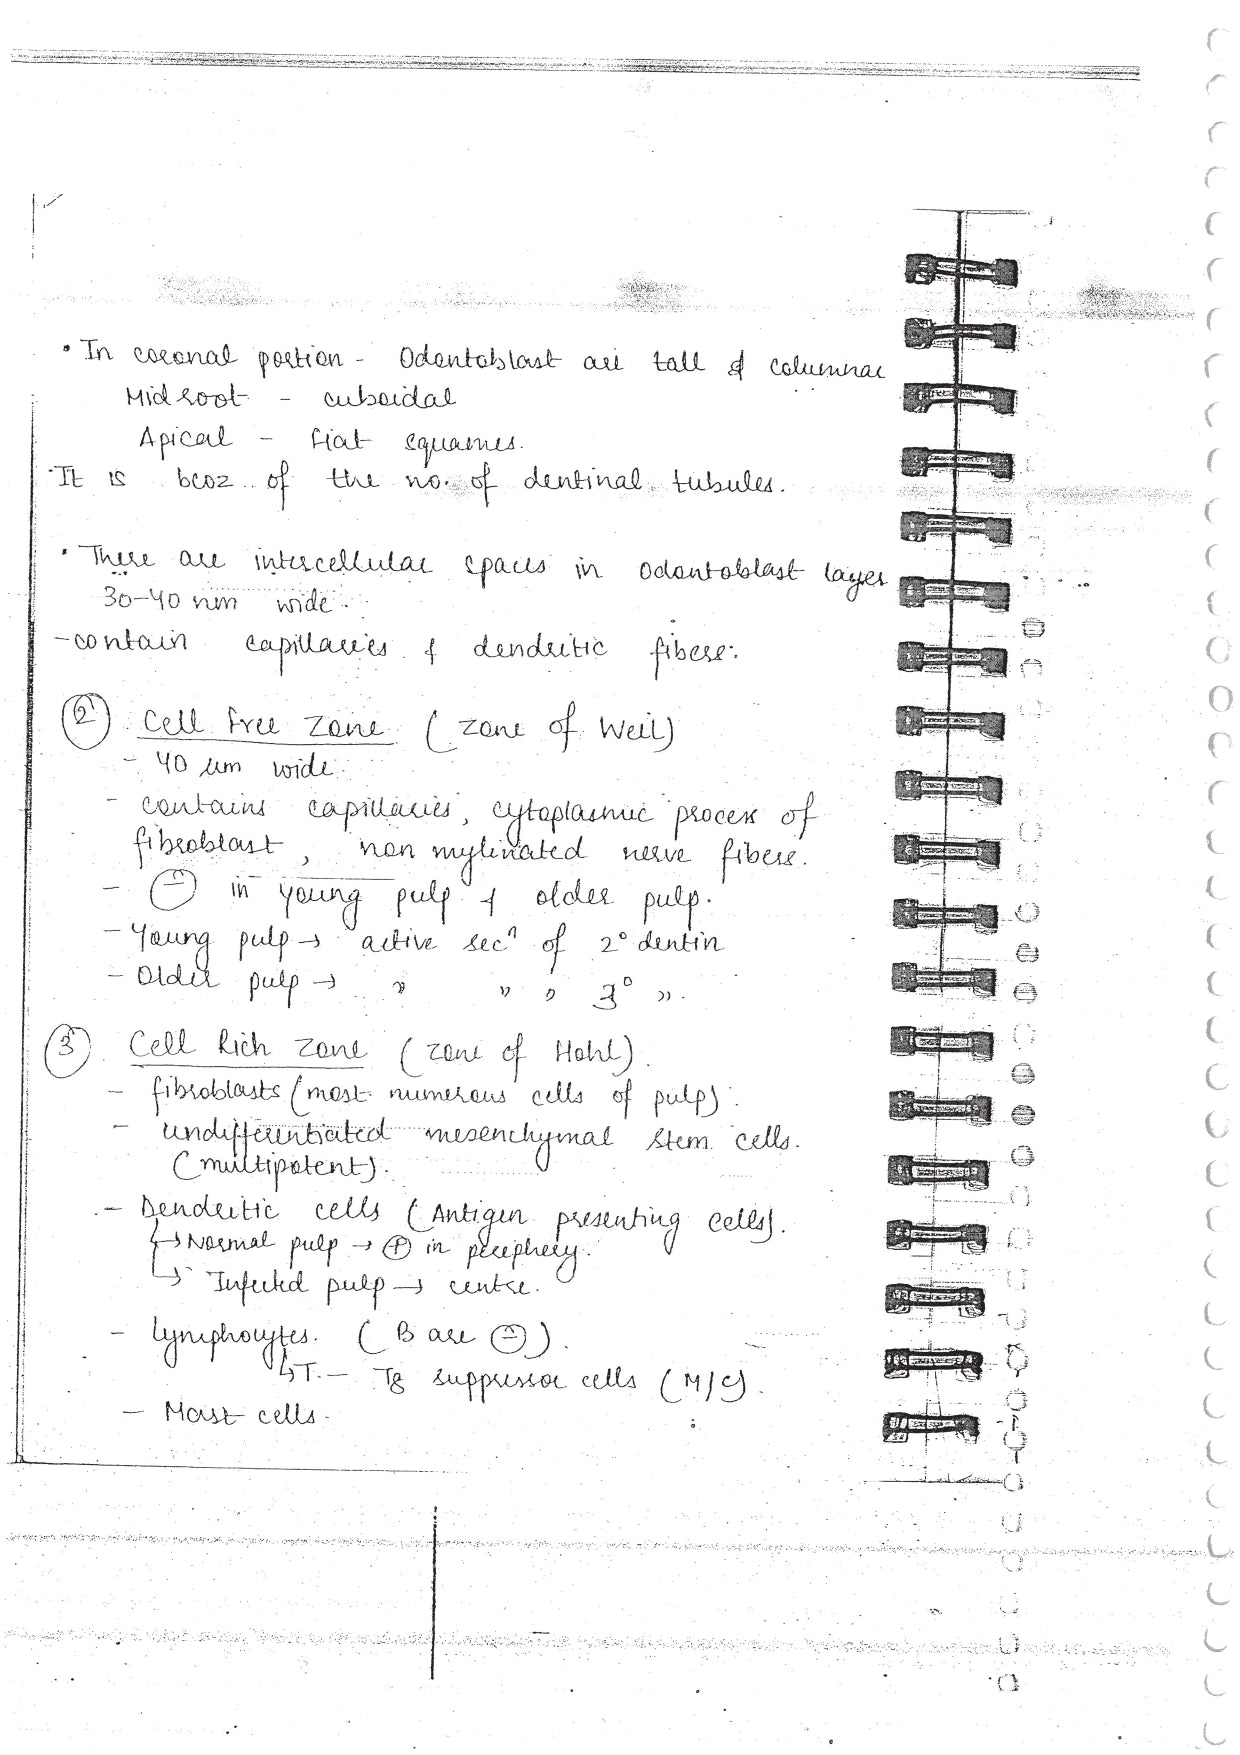 • In coronal portion - Odontoblast are tall & columnar
Mid root - cuboidal
Apical - flat squames.
• It is bcoz of the no. of dentinal tubules.
• There are intercellular spaces in Odontoblast layer
30-40 nm wide.
- contain capillaries & dendritic fibers.
② Cell Free Zone (Zone of Weil)
- 40 um wide.
- contains capillaries, cytoplasmic process of
fibroblast, non mylinated nerve fibers.
- ⊖ in young pulp & older pulp.
- Young pulp → active secⁿ of 2° dentin
- Older pulp → " " " 3° ".
③ Cell Rich Zone (Zone of Hohl).
- fibroblasts (most numerous cells of pulp).
- undifferentiated mesenchymal stem cells.
(multipotent).
- Dendritic cells (Antigen presenting cells).
↳ Normal pulp → ⊕ in periphery.
↳ Infected pulp → centre.
- lymphocytes. (B are ⊖).
↳ T. - T8 suppressor cells (M/C).
- Mast cells.